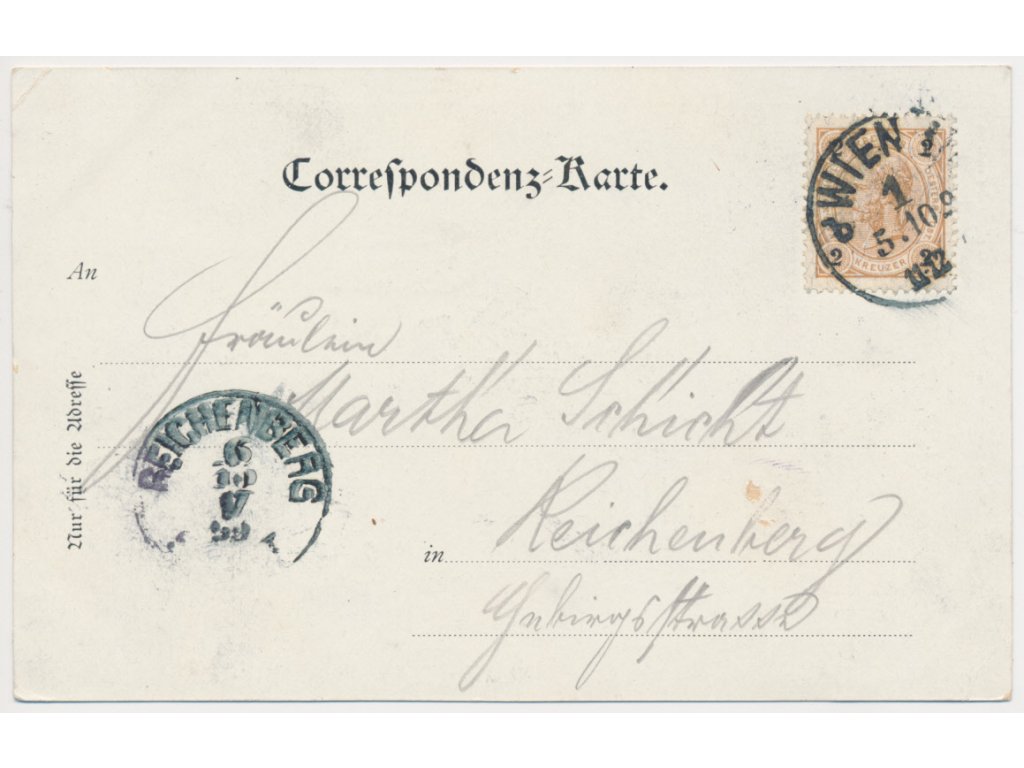 Correſpondenz-Karte.
WIEN 1
5.10.9
11-12
2 KREUZER 2
An
Fräulein
Martha Schicht
Nur für die Adreſſe
REICHENBERG
6
10
99
in Reichenberg
Gebirgsstrasse